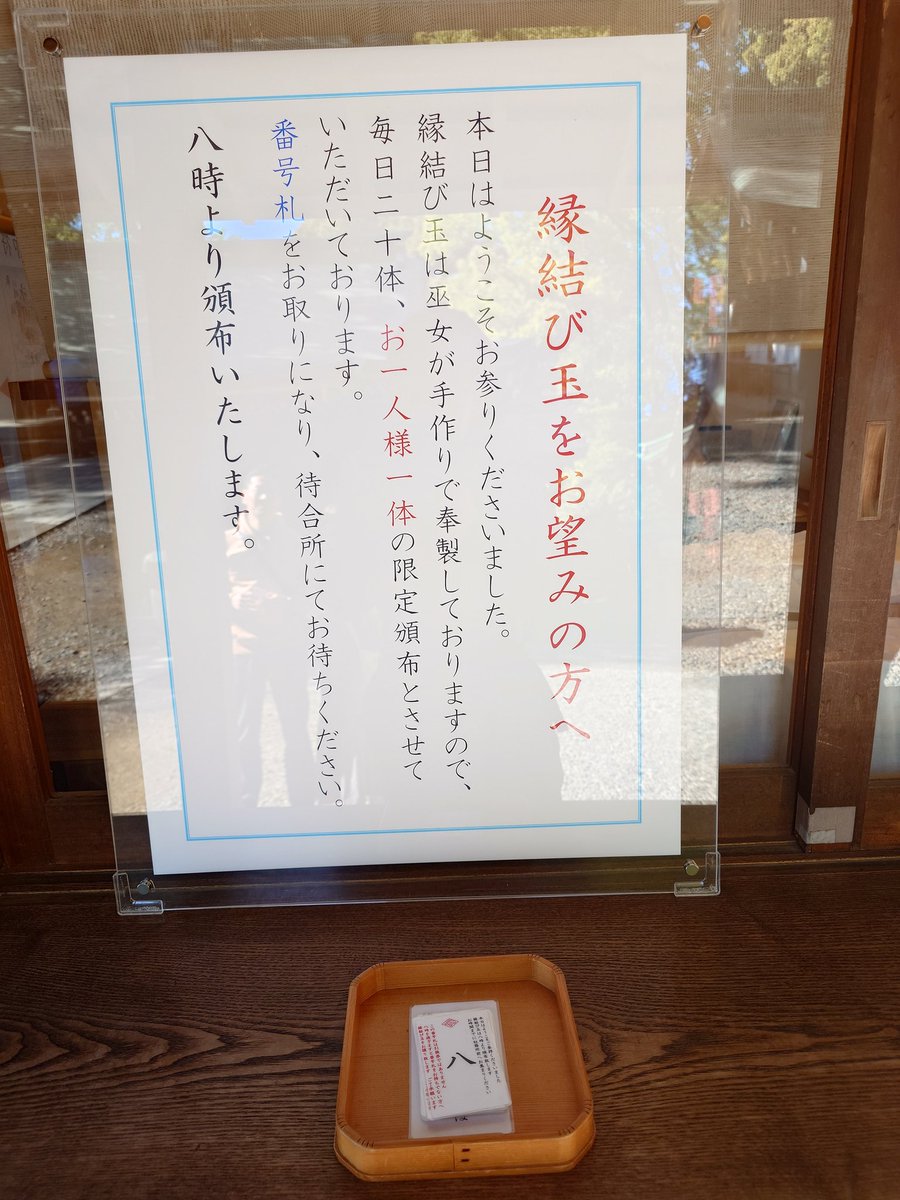 縁結び玉をお望みの方へ
本日はようこそお参りくださいました。
縁結び玉は巫女が手作りで奉製しておりますので、
毎日二十体、お一人様一体の限定頒布とさせて
いただいております。
番号札をお取りになり、待合所にてお待ちください。
八時より頒布いたします。
本日はようこそご参拝くださいました
八